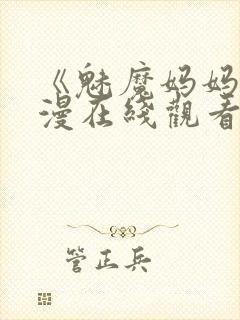 《魅魔妈妈
漫在綫觀看
管正兵